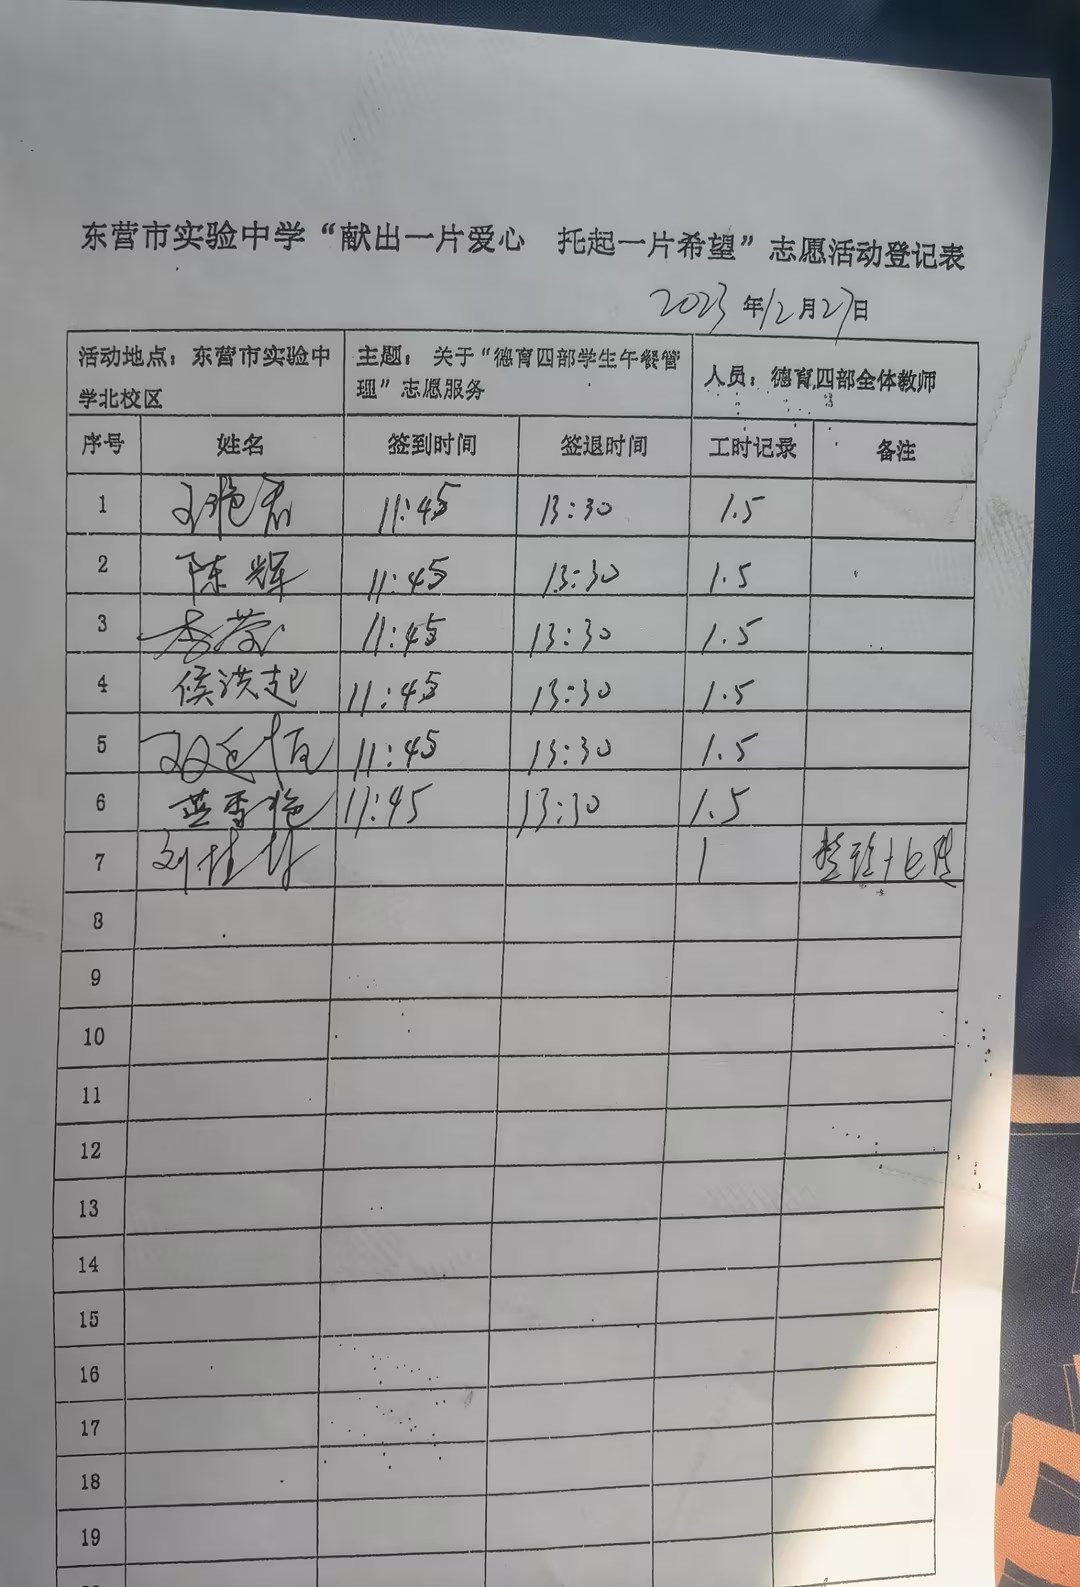 东营市实验中学“献出一片爱心 托起一片希望”志愿活动登记表
2023年12月27日
活动地点：东营市实验中学北校区 主题：关于“德育四部学生午餐管理”志愿服务 人员：德育四部全体教师
序号 姓名 签到时间 签退时间 工时记录 备注
1 11:45 13:30 1.5
2 陈辉 11:45 13:30 1.5
3 李荣 11:45 13:30 1.5
4 侯洪起 11:45 13:30 1.5
5 11:45 13:30 1.5
6 11:45 13:30 1.5
7 1
8
9
10
11
12
13
14
15
16
17
18
19